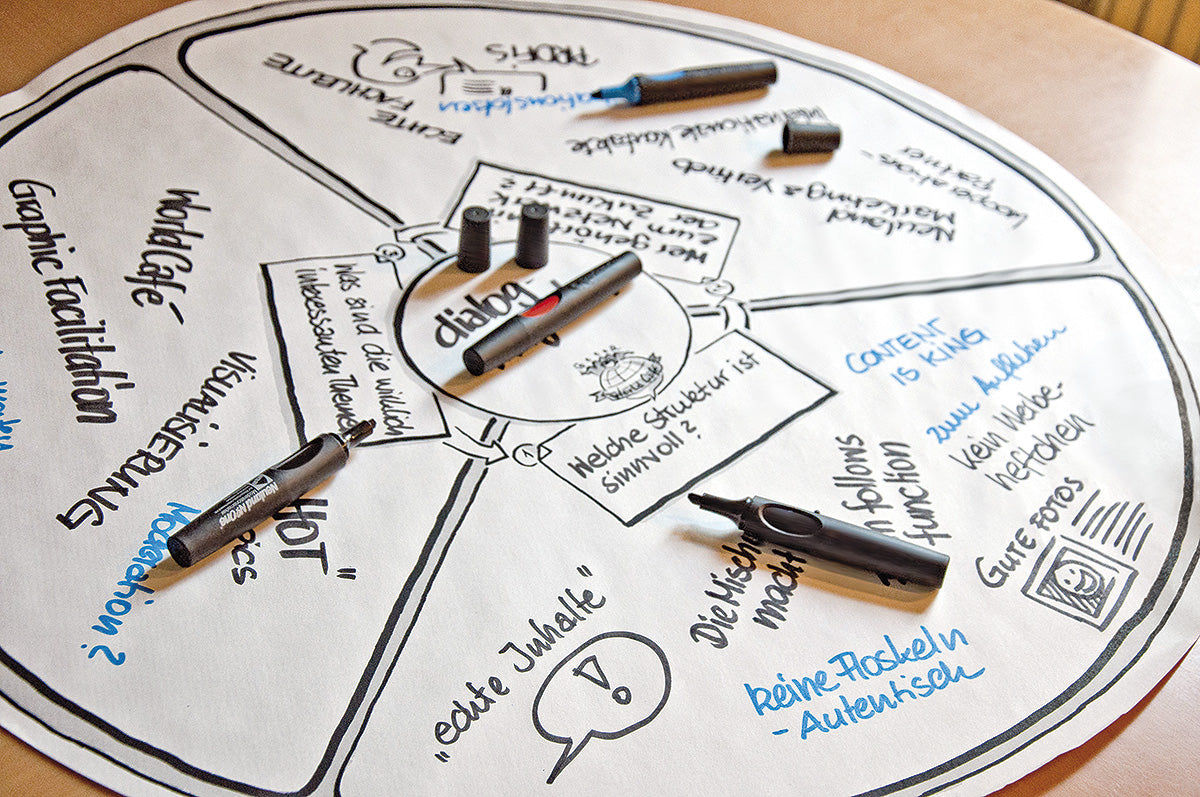 PROFIS
ECHTE FACHLEUTE
Internationale Kontakte
Kooperations-
partner
Neuland
Marketing & Vertrieb
Wer gehört
zum Netzwerk
der Zukunft?
3
2
1
dialog-
World Café
Was sind die wirklich
interessanten Themen
Welche Struktur ist
sinnvoll?
WorldCafe-
Graphic Facilitation
VISUALISIERUNG
Moderation?
"HOT
Neuland No.One
CONTENT
IS KING
zum Aufheben
kein Werbe-
heftchen
follows
function
GUTE FOTOS
Die Mischung
macht
„echte Inhalte"
!
keine Floskeln
- Autentisch